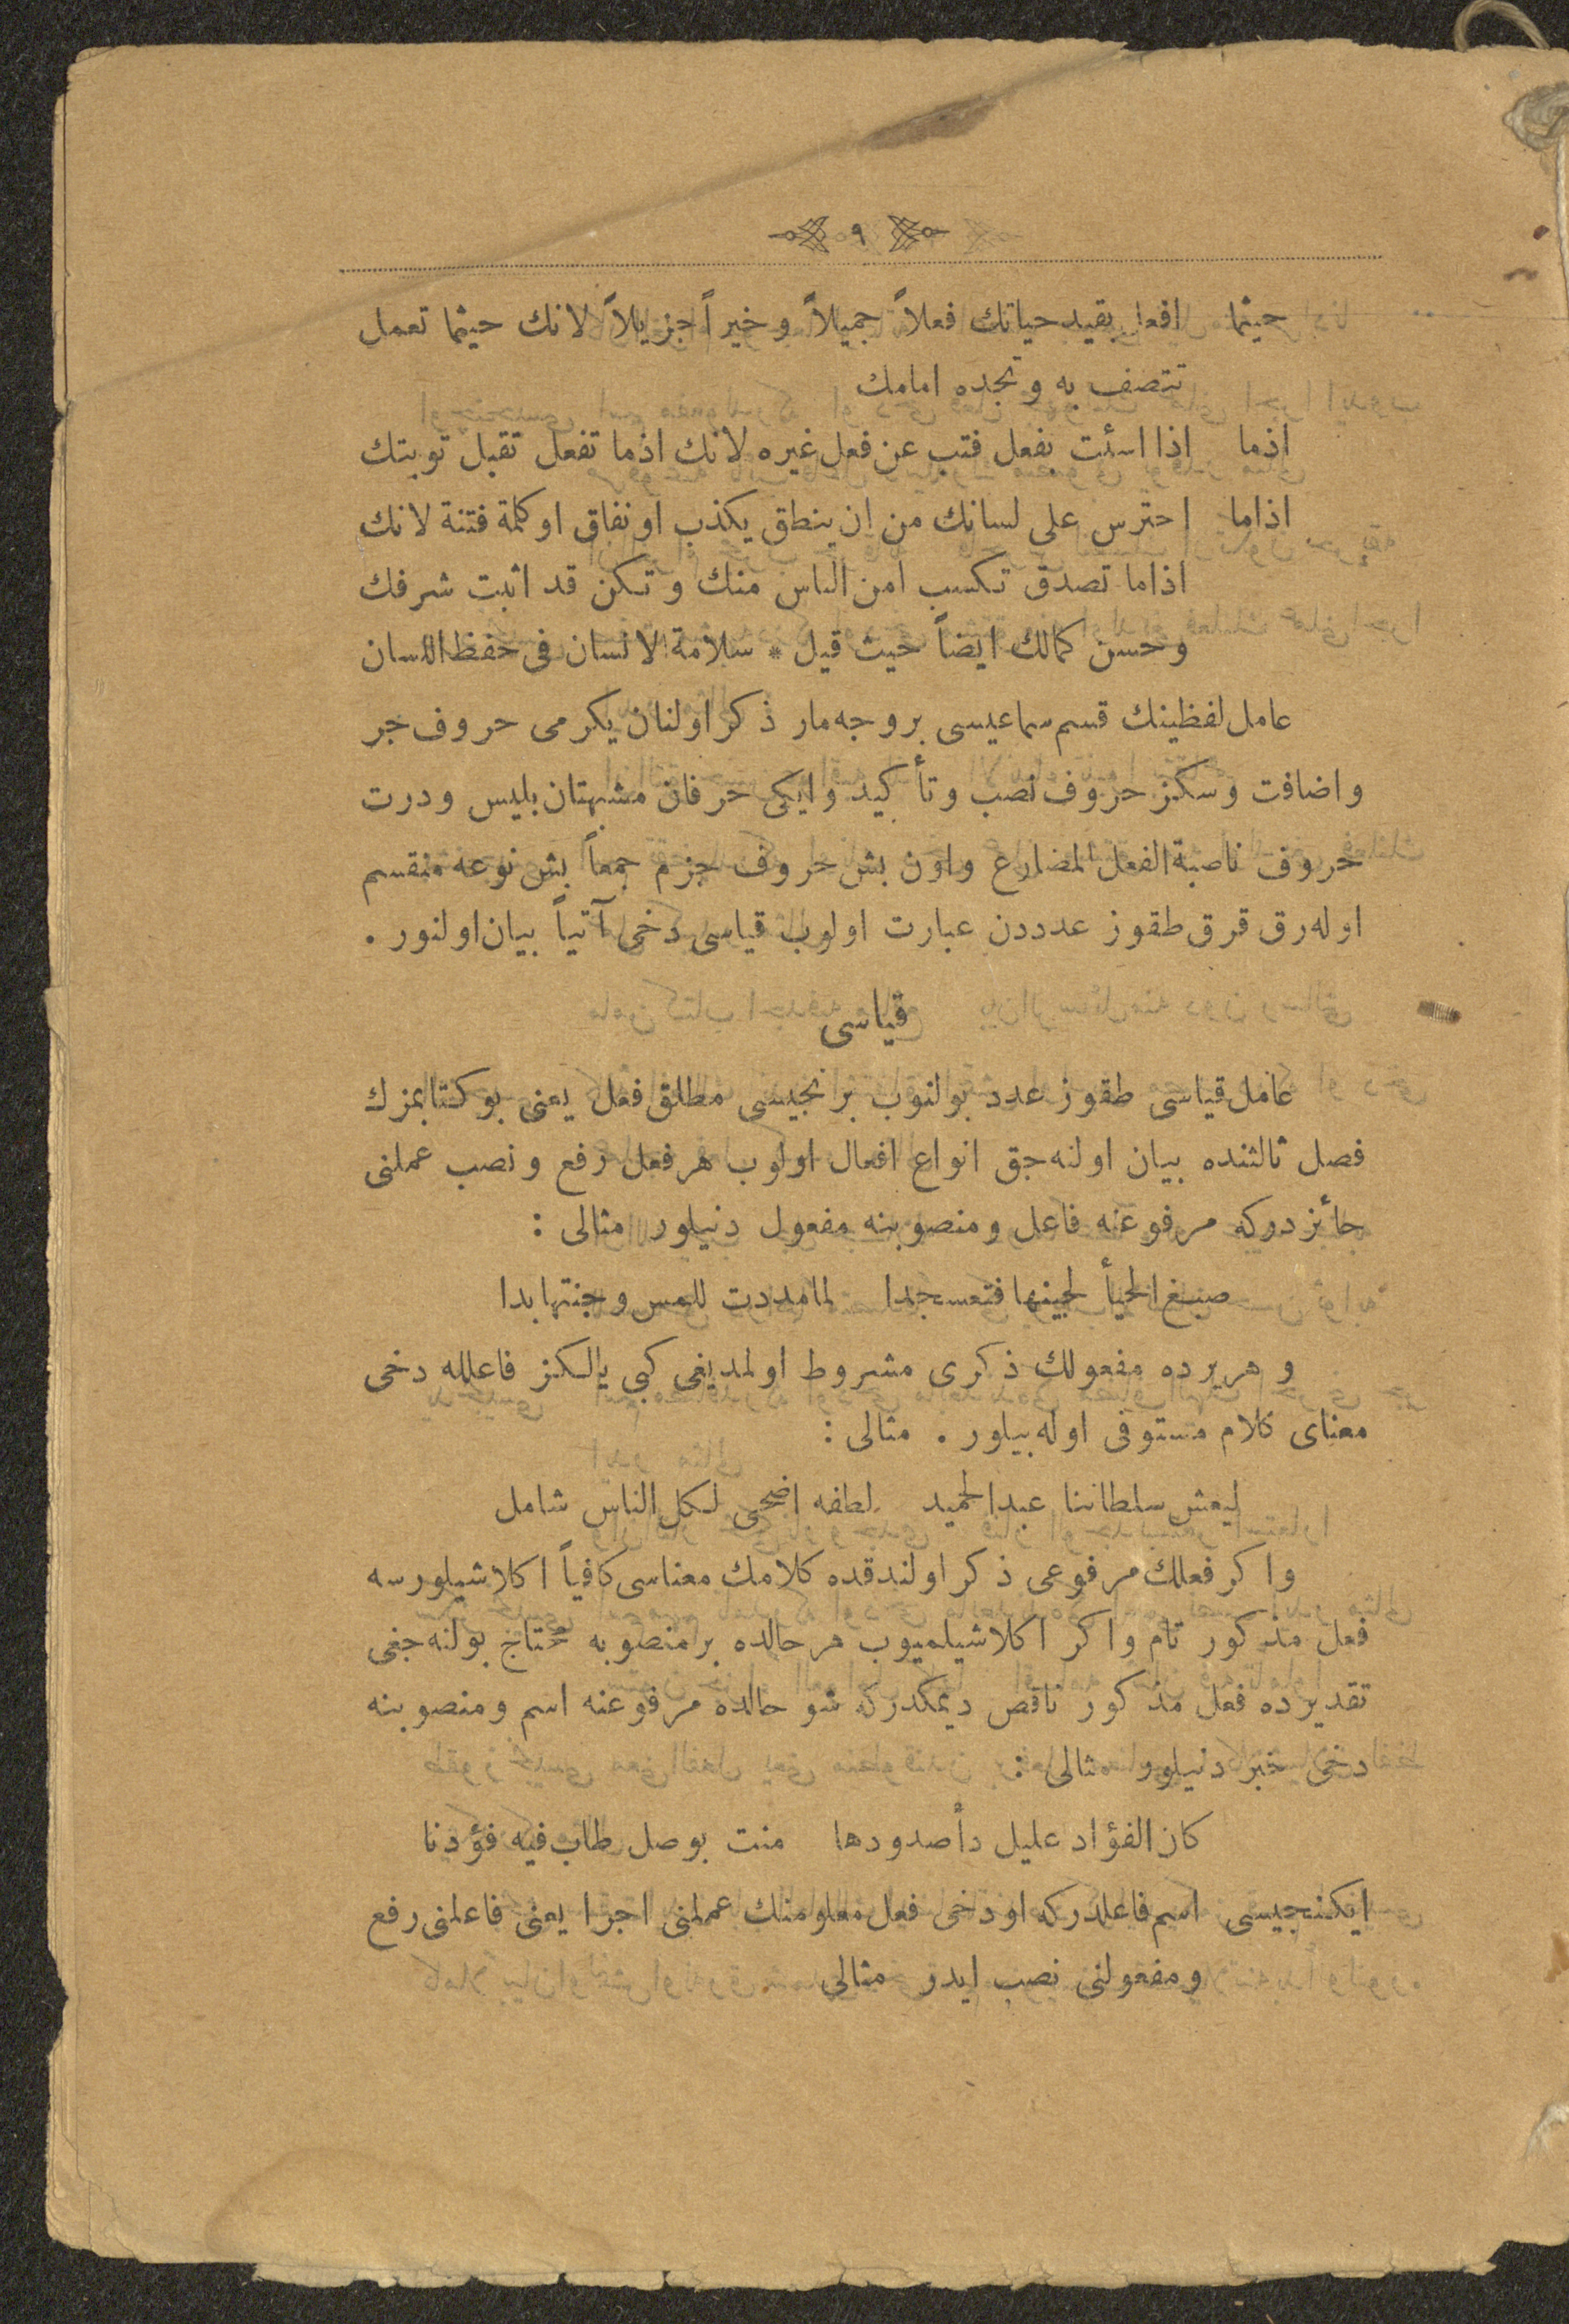 ٩
حيثما افعل بقيد حياتك فعلاً جميلاً و خيراً جزيلاً لانك حيثما تعمل
تتصف به و تجده امامك
اذما اذا اسئت بفعل فتب عن فعل غيره لانك اذما تفعل تقبل توبتك
اذاما احترس على لسانك من ان ينطق يكذب او نفاق او كلمة فتنة لانك
اذاما تصدق تكسب امن الناس منك و تكن قد اثبت شرفك
و حسن كمالك ايضاً حيث قيل * سلامة الانسان فى حفظ اللسان
عامل لفظينك قسم سماعيسى بر وجه مار ذكر اولنان يكرمى حروف جر
و اضافت و سكز حروف نصب و تأكيد و ايكى حرفان مشبهتان بليس و درت
حروف ناصبة الفعل المضارع و اون بش حروف جزم جمعاً بش نوعه منقسم
اوله رق قرق طقوز عدددن عبارت اولوب قياسى دخى آتياً بيان اولنور .
قياسى
عامل قياسى طقوز عدد بولنوب برنجيسى مطلق فعل يعنى بو كتابمزك
فصل ثالثنده بيان اولنه جق انواع افعال اولوب هر فعل رفع و نصب عملنى
جائزدركه مرفوعنه فاعل و منصوبنه مفعول دنيلور مثالى :
صبغ الحيأ لجينها فتعسجدا لما مددت للمس وجنتها بدا
و هر يرده مفعولك ذكرى مشروط اولمديغى كبى يالكز فاعلله دخى
معناى كلام مستوفى اوله بيلور . مثالى :
ليعش سلطاننا عبدالحميد لطفه اضحى لكل الناس شامل
و اكر فعلك مرفوعى ذكر اولندقده كلامك معناسى كافياً اكلاشيلورسه
فعل مذكور تام و اكر اكلاشيلميوب هر حالده بر منصوبه محتاج بولنه جغى
تقديرده فعل مذكور ناقص ديمكدركه شو حالده مرفوعنه اسم و منصوبنه
دخى خبر دنيلور مثالى :
كان الفؤاد عليل دأ صدودها منت بوصل طاب فيه فؤدنا
ايكنجيسى اسم فاعلدركه او دخى فعل معلومنك عملنى اجرا يعنى فاعلنى رفع
و مفعولنى نصب ايدر مثالى